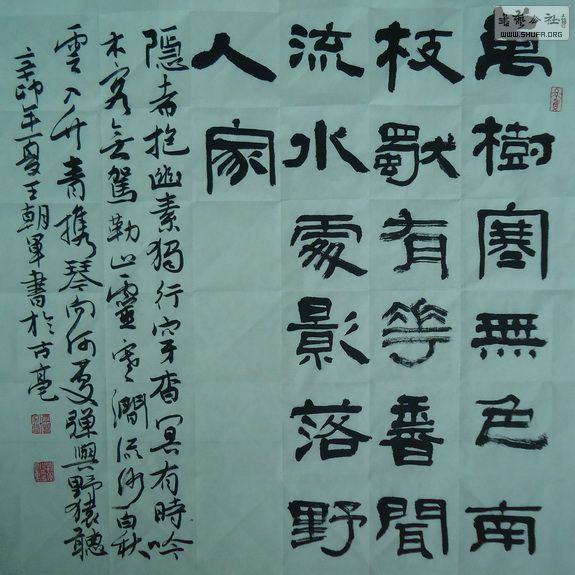 書藝公社
WWW.SHUFA.ORG
萬樹寒無色南
枝獨有華香聞
流水處影落野
人家
隱者抱幽素獨行穿杳冥有時吟
木客無駕勒山靈寒澗流沙白秋
雲入竹青携琴向何處彈與野猿聽
辛卯年夏王朝軍書於古亳